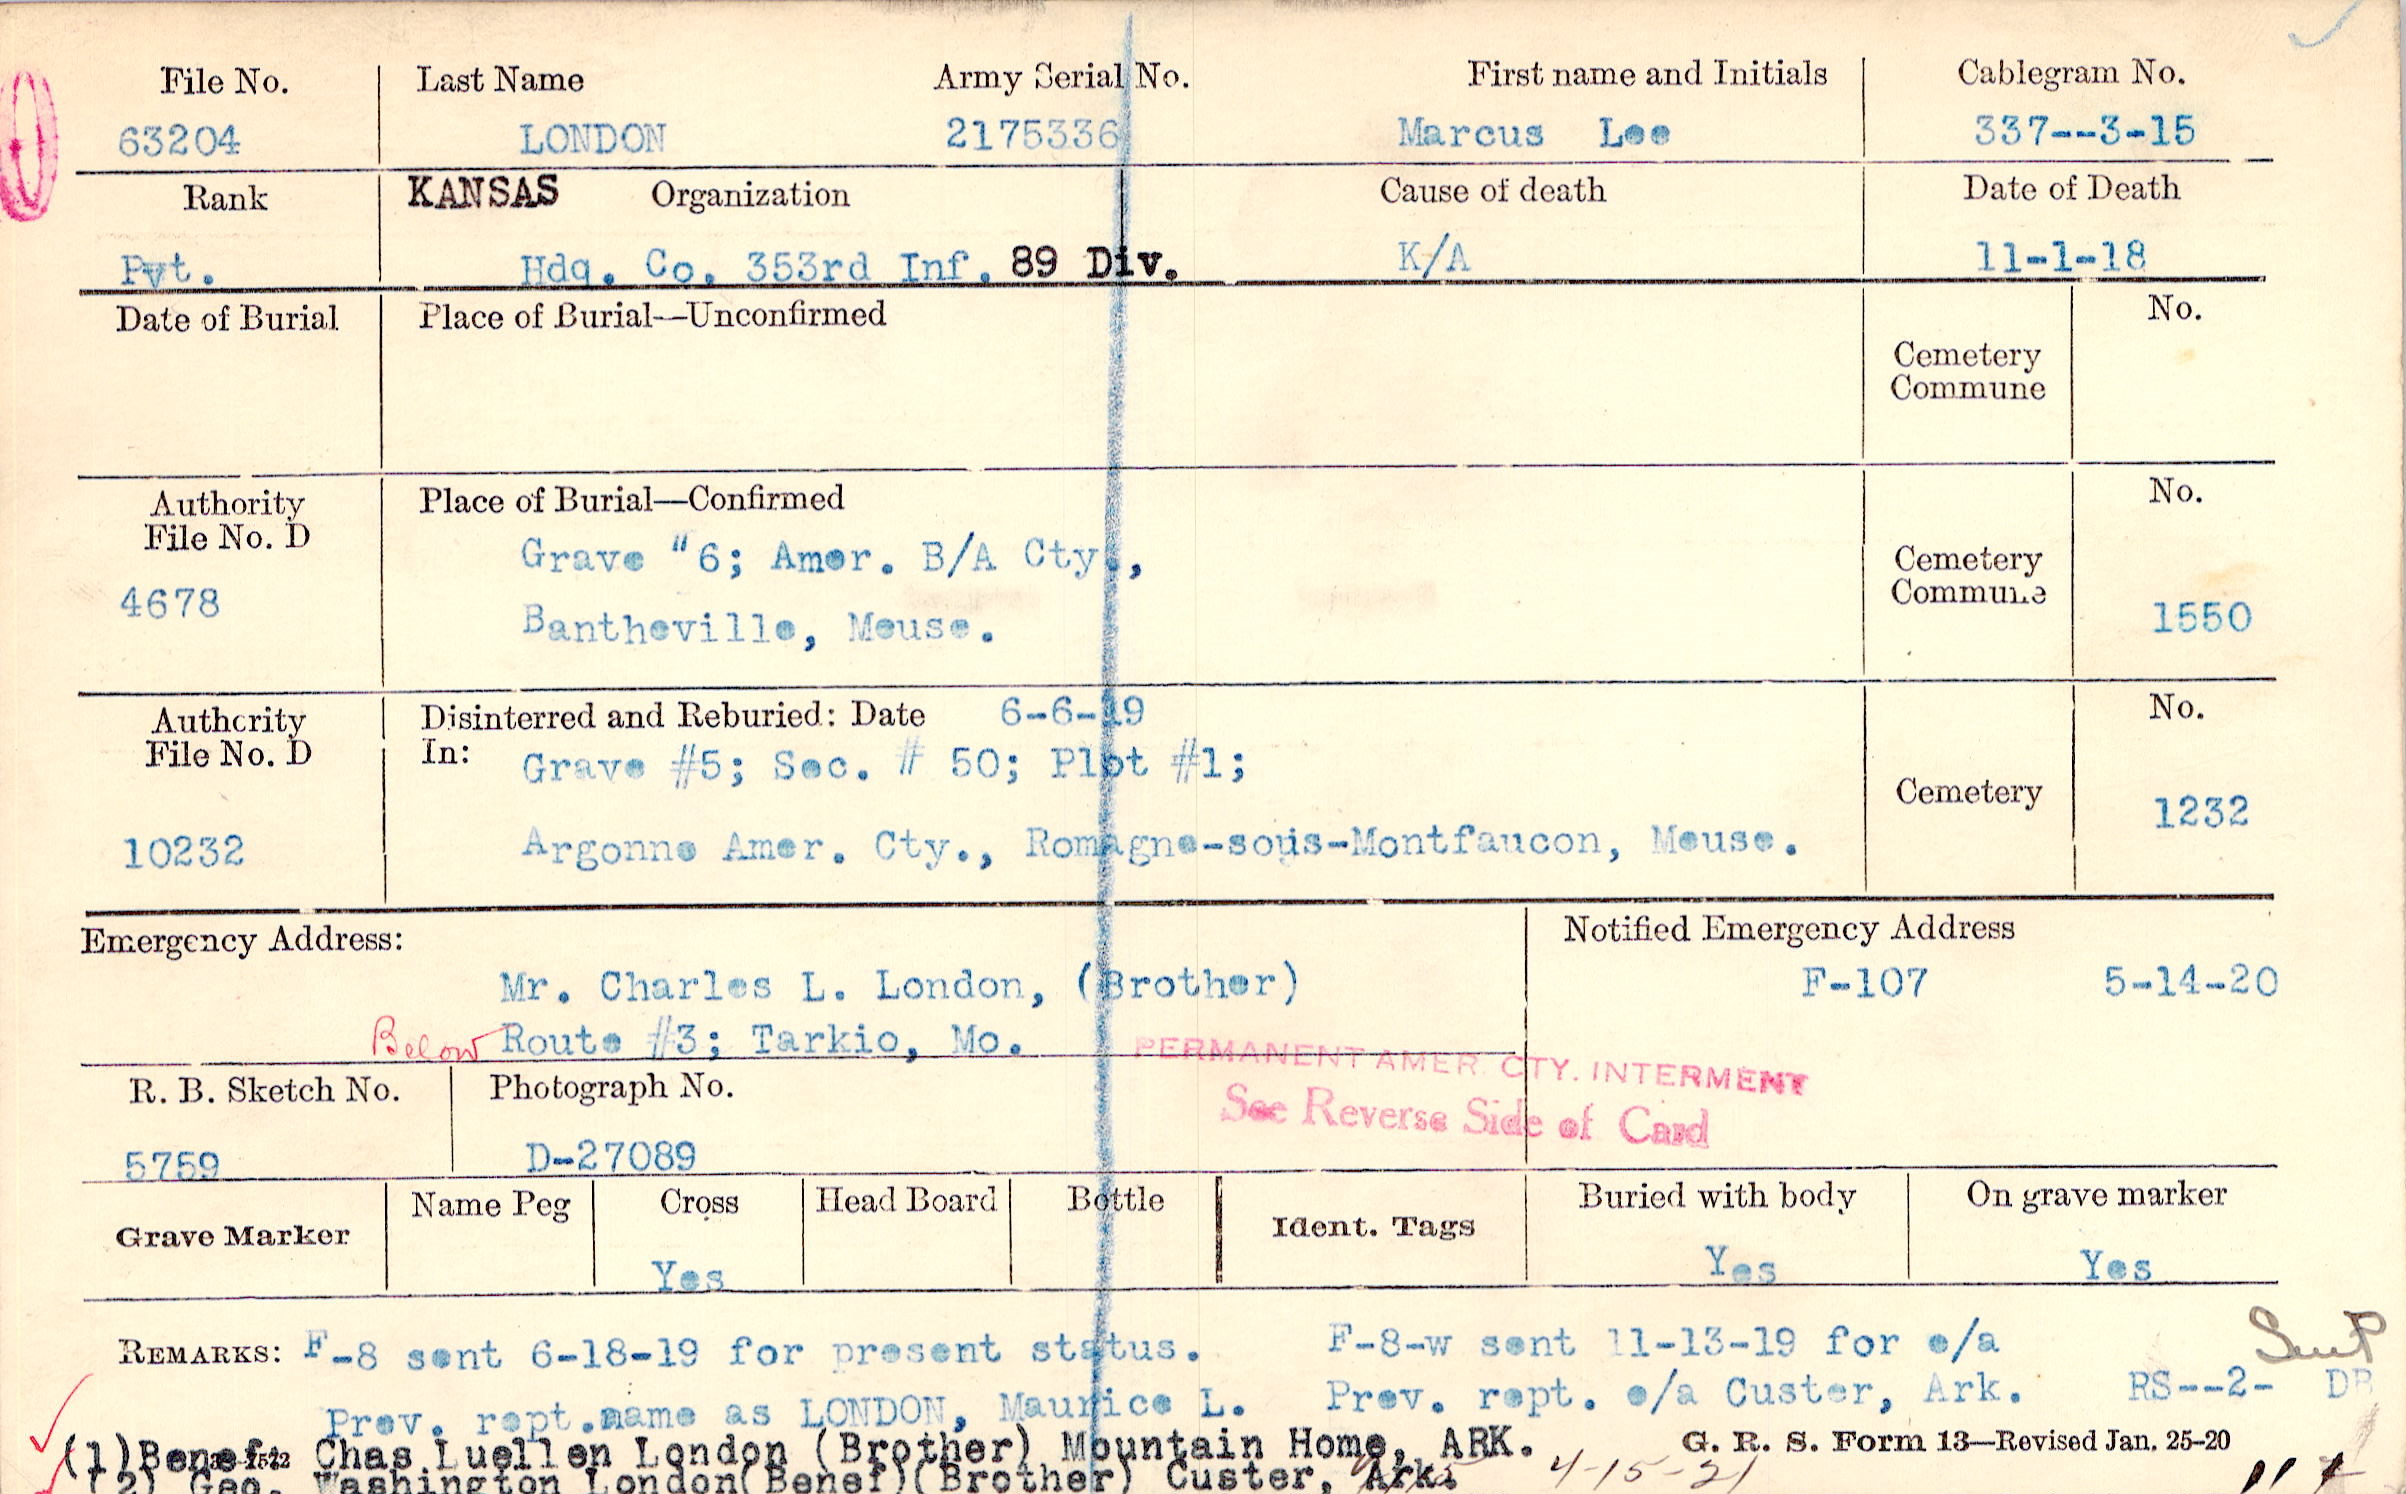 File No. Last Name Army Serial No. First name and Initials Cablegram No.
63204 LONDON 2175336 Marcus Lee 337--3-15
Rank KANSAS Organization Cause of death Date of Death
Pvt. Hdq. Co. 353rd Inf. 89 Div. K/A 11-1-18
Date of Burial Place of Burial—Unconfirmed No.
Cemetery
Commune
Authority Place of Burial—Confirmed No.
File No. D
Grave "6; Amer. B/A Cty., Cemetery
4678 Commune 1550
Bantheville, Meuse.
Authority Disinterred and Reburied: Date 6-6-19 No.
File No. D In: Grave #5; Sec. # 50; Plot #1;
Cemetery 1232
10232 Argonne Amer. Cty., Romagne-sous-Montfaucon, Meuse.
Emergency Address: Notified Emergency Address
Mr. Charles L. London, (Brother) F-107 5-14-20
Below Route #3; Tarkio, Mo.
PERMANENT AMER. CTY. INTERMENT
R. B. Sketch No. Photograph No. See Reverse Side of Card
5759 D-27089
Grave Marker Name Peg Cross Head Board Bottle Ident. Tags Buried with body On grave marker
Yes Yes Yes
REMARKS: F-8 sent 6-18-19 for present status. F-8-w sent 11-13-19 for e/a
Prev. rept.name as LONDON, Maurice L. Prev. rept. e/a Custer, Ark. RS--2- DB
(1)Benef: Chas Luellen London (Brother) Mountain Home, ARK. G. R. S. Form 13—Revised Jan. 25-20
(2) Geo. Washington London(Benef)(Brother) Custer, Ark. 4-15-21